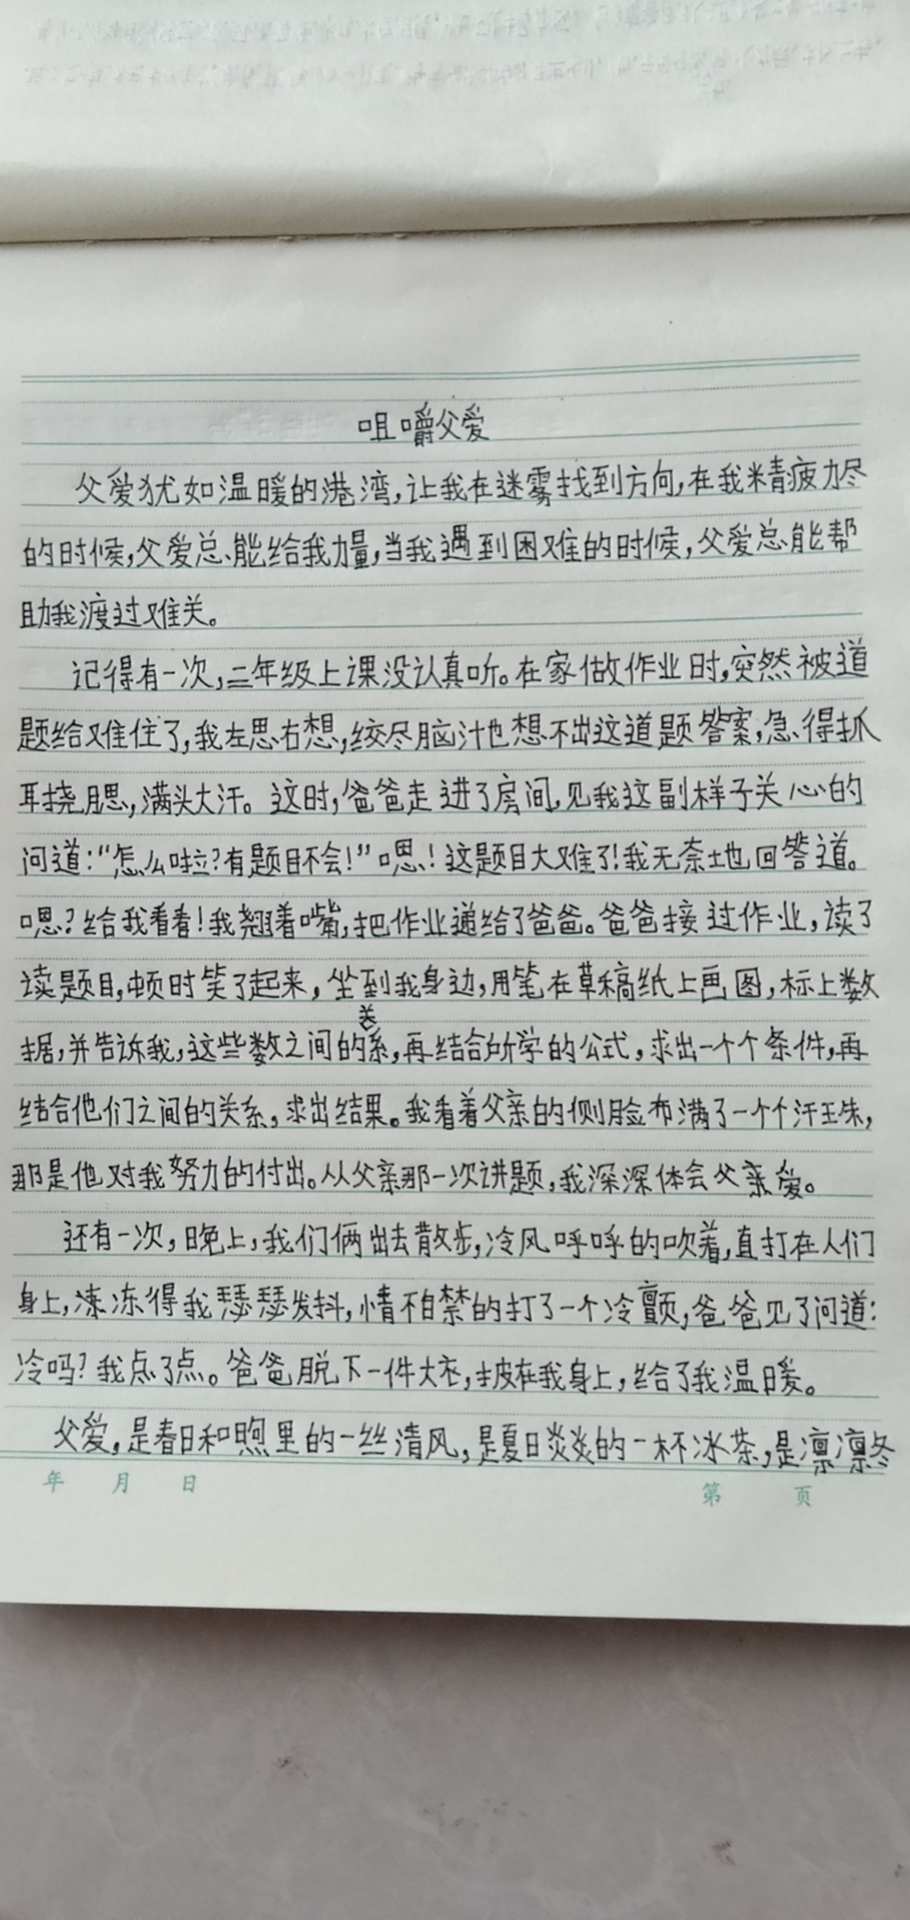 咀嚼父爱
父爱犹如温暖的港湾,让我在迷雾找到方向,在我精疲力尽
的时候,父爱总能给我力量,当我遇到困难的时候,父爱总能帮
助我渡过难关。
记得有一次,二年级上课没认真听。在家做作业时,突然被道
题给难住了,我左思右想,绞尽脑汁也想不出这道题答案,急得抓
耳挠腮,满头大汗。这时,爸爸走进了房间,见我这副样子关心的
问道:“怎么啦?有题目不会!”嗯!这题目太难了!我无奈地回答道。
嗯?给我看看!我翘着嘴,把作业递给了爸爸。爸爸接过作业,读了
读题目,顿时笑了起来,坐到我身边,用笔在草稿纸上画图,标上数
据,并告诉我,这些数之间的关系,再结合所学的公式,求出一个个条件,再
结合他们之间的关系,求出结果。我看着父亲的侧脸布满了一个个汗珠,
那是他对我努力的付出。从父亲那一次讲题,我深深体会父亲爱。
还有一次,晚上,我们俩出去散步,冷风呼呼的吹着,直打在人们
身上,冻得我瑟瑟发抖,情不自禁的打了一个冷颤,爸爸见了问道:
冷吗?我点了点。爸爸脱下一件大衣,披在我身上,给了我温暖。
父爱,是春日和煦里的一丝清风,是夏日炎炎的一杯冰茶,是凛凛冬
年 月 日 第 页